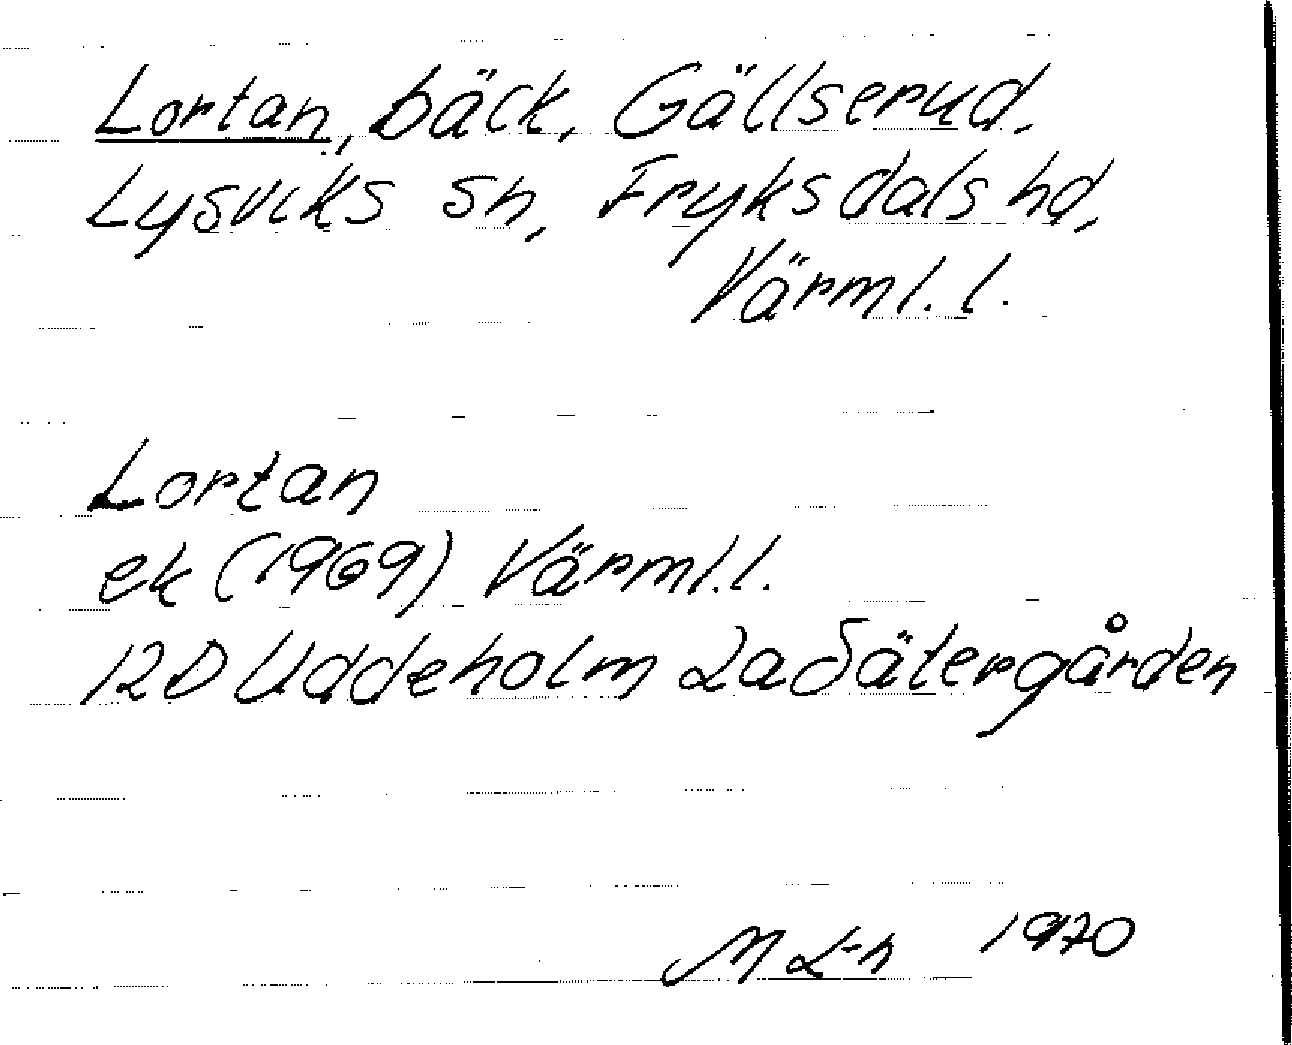 Lortan, bäck, Gällserud,
Lysviks sn, Fryksdals hd,
Värml. l.
Lortan
ek (1969) Värml. l.
12D Uddeholm 2a Sätergården
M L-n 1970